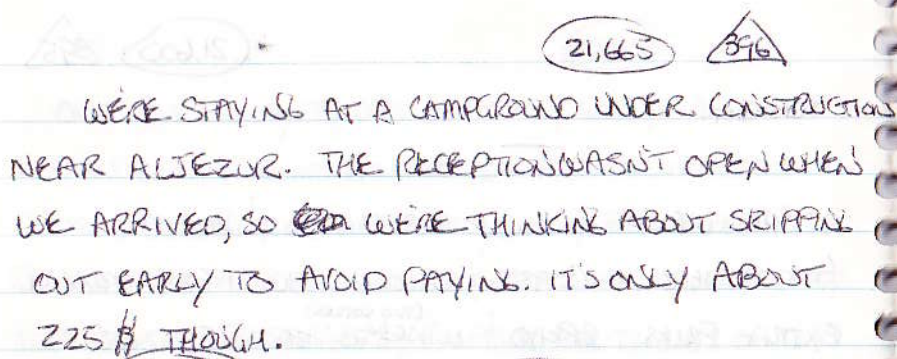 21,665 396
WE'RE STAYING AT A CAMPGROUND UNDER CONSTRUCTION
NEAR ALJEZUR. THE RECEPTION WASN'T OPEN WHEN
WE ARRIVED, SO WE'RE THINKING ABOUT SKIPPING
OUT EARLY TO AVOID PAYING. IT'S ONLY ABOUT
225 $ THOUGH.